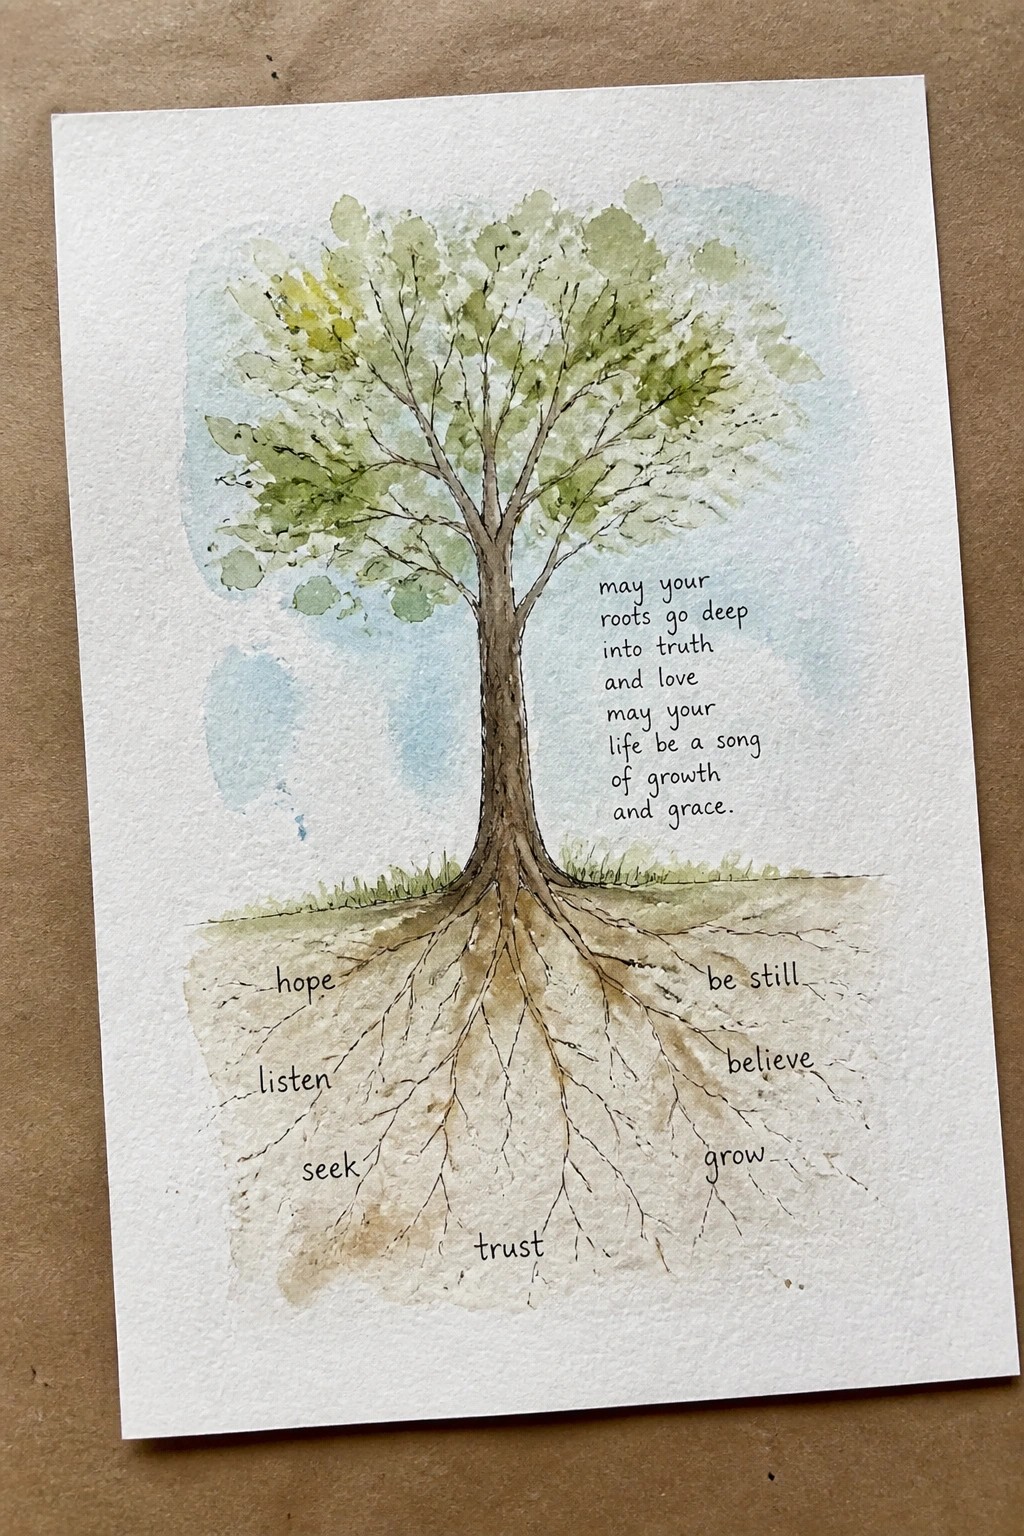 may your
roots go deep
into truth
and love
may your
life be a song
of growth
and grace.
hope
be still
listen
believe
seek
grow
trust